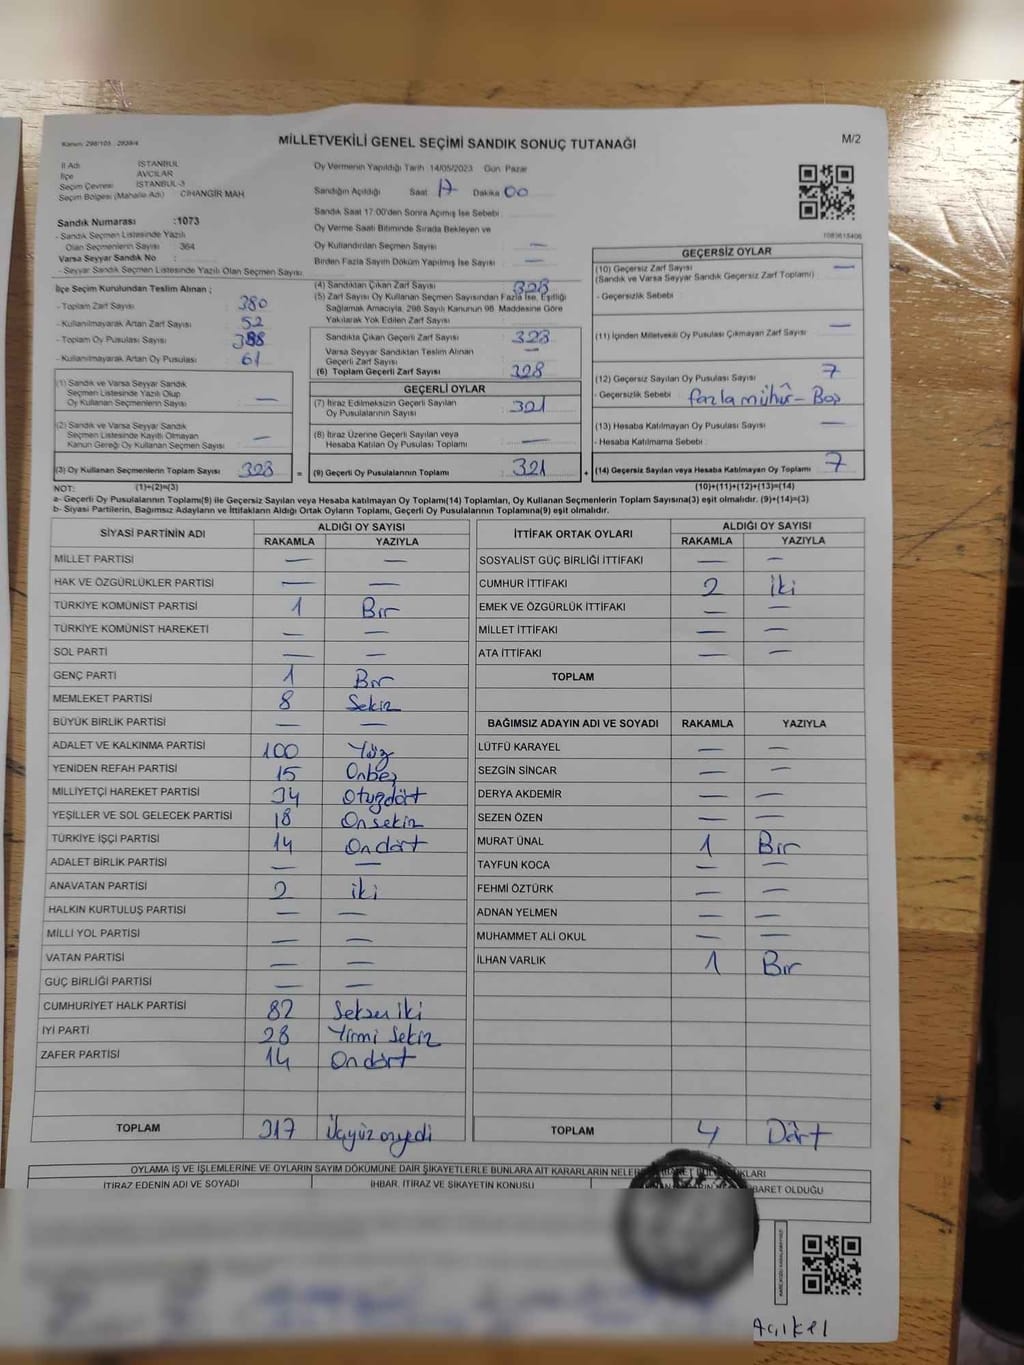 Kanun: 298/105 - 2839/4
MİLLETVEKİLİ GENEL SEÇİMİ SANDIK SONUÇ TUTANAĞI
M/2
İl Adı İSTANBUL
İlçe AVCILAR
Seçim Çevresi İSTANBUL-3
Seçim Bölgesi (Mahalle Adı) CİHANGİR MAH
Sandık Numarası :1073
- Sandık Seçmen Listesinde Yazılı
Olan Seçmenlerin Sayısı : 364
Varsa Seyyar Sandık No :
- Seyyar Sandık Seçmen Listesinde Yazılı Olan Seçmen Sayısı:
Oy Vermenin Yapıldığı Tarih 14/05/2023 Gün Pazar
Sandığın Açıldığı Saat 17 Dakika 00
Sandık Saat 17:00'den Sonra Açılmış İse Sebebi
Oy Verme Saati Bitiminde Sırada Bekleyen ve
Oy Kullandırılan Seçmen Sayısı —
Birden Fazla Sayım Döküm Yapılmış İse Sayısı —
1083615406
İlçe Seçim Kurulundan Teslim Alınan ;
- Toplam Zarf Sayısı 380
- Kullanılmayarak Artan Zarf Sayısı 52
- Toplam Oy Pusulası Sayısı 388
- Kullanılmayarak Artan Oy Pusulası 61
(1) Sandık ve Varsa Seyyar Sandık
Seçmen Listesinde Yazılı Olup
Oy Kullanan Seçmenlerin Sayısı —
(2) Sandık ve Varsa Seyyar Sandık
Seçmen Listesinde Kayıtlı Olmayan
Kanun Gereği Oy Kullanan Seçmen Sayısı —
(3) Oy Kullanan Seçmenlerin Toplam Sayısı 328 =
(4) Sandıktan Çıkan Zarf Sayısı 328
(5) Zarf Sayısı Oy Kullanan Seçmen Sayısından Fazla İse, Eşitliği
Sağlamak Amacıyla, 298 Sayılı Kanunun 98. Maddesine Göre
Yakılarak Yok Edilen Zarf Sayısı
Sandıkta Çıkan Geçerli Zarf Sayısı 328
Varsa Seyyar Sandıktan Teslim Alınan
Geçerli Zarf Sayısı —
(6) Toplam Geçerli Zarf Sayısı 328
GEÇERLİ OYLAR
(7) İtiraz Edilmeksizin Geçerli Sayılan
Oy Pusulalarının Sayısı 321
(8) İtiraz Üzerine Geçerli Sayılan veya
Hesaba Katılan Oy Pusulası Toplamı —
(9) Geçerli Oy Pusulalarının Toplamı 321 +
GEÇERSİZ OYLAR
(10) Geçersiz Zarf Sayısı —
(Sandık ve Varsa Seyyar Sandık Geçersiz Zarf Toplamı)
- Geçersizlik Sebebi
(11) İçinden Milletvekili Oy Pusulası Çıkmayan Zarf Sayısı —
(12) Geçersiz Sayılan Oy Pusulası Sayısı 7
- Geçersizlik Sebebi fazla mühür - Boş
(13) Hesaba Katılmayan Oy Pusulası Sayısı —
- Hesaba Katılmama Sebebi :
(14) Geçersiz Sayılan veya Hesaba Katılmayan Oy Toplamı 7
NOT: (1)+(2)=(3) (10)+(11)+(12)+(13)=(14)
a- Geçerli Oy Pusulalarının Toplamı(9) ile Geçersiz Sayılan veya Hesaba katılmayan Oy Toplamı(14) Toplamları, Oy Kullanan Seçmenlerin Toplam Sayısına(3) eşit olmalıdır. (9)+(14)=(3)
b- Siyasi Partilerin, Bağımsız Adayların ve İttifakların Aldığı Ortak Oyların Toplamı, Geçerli Oy Pusulalarının Toplamına(9) eşit olmalıdır.
SİYASİ PARTİNİN ADI ALDIĞI OY SAYISI
RAKAMLA YAZIYLA
MİLLET PARTİSİ — —
HAK VE ÖZGÜRLÜKLER PARTİSİ — —
TÜRKİYE KOMÜNİST PARTİSİ 1 Bir
TÜRKİYE KOMÜNİST HAREKETİ — —
SOL PARTİ — —
GENÇ PARTİ 1 Bir
MEMLEKET PARTİSİ 8 Sekiz
BÜYÜK BİRLİK PARTİSİ — —
ADALET VE KALKINMA PARTİSİ 100 Yüz
YENİDEN REFAH PARTİSİ 15 Onbeş
MİLLİYETÇİ HAREKET PARTİSİ 34 Otuzdört
YEŞİLLER VE SOL GELECEK PARTİSİ 18 Onsekiz
TÜRKİYE İŞÇİ PARTİSİ 14 Ondört
ADALET BİRLİK PARTİSİ — —
ANAVATAN PARTİSİ 2 iki
HALKIN KURTULUŞ PARTİSİ — —
MİLLİ YOL PARTİSİ — —
VATAN PARTİSİ — —
GÜÇ BİRLİĞİ PARTİSİ — —
CUMHURİYET HALK PARTİSİ 82 Seksen iki
İYİ PARTİ 28 Yirmi Sekiz
ZAFER PARTİSİ 14 Ondört
TOPLAM 317 Üçyüz onyedi
İTTİFAK ORTAK OYLARI ALDIĞI OY SAYISI
RAKAMLA YAZIYLA
SOSYALİST GÜÇ BİRLİĞİ İTTİFAKI — —
CUMHUR İTTİFAKI 2 iki
EMEK VE ÖZGÜRLÜK İTTİFAKI — —
MİLLET İTTİFAKI — —
ATA İTTİFAKI — —
TOPLAM
BAĞIMSIZ ADAYIN ADI VE SOYADI RAKAMLA YAZIYLA
LÜTFÜ KARAYEL — —
SEZGİN SİNCAR — —
DERYA AKDEMİR — —
SEZEN ÖZEN — —
MURAT ÜNAL 1 Bir
TAYFUN KOCA — —
FEHMİ ÖZTÜRK — —
ADNAN YELMEN — —
MUHAMMET ALİ OKUL — —
İLHAN VARLIK 1 Bir
TOPLAM 4 Dört
OYLAMA İŞ VE İŞLEMLERİNE VE OYLARIN SAYIM DÖKÜMÜNE DAİR ŞİKAYETLERLE BUNLARA AİT KARARLARIN
İTİRAZ EDENİN ADI VE SOYADI İHBAR, İTİRAZ VE ŞİKAYETİN KONUSU İBARET OLDUĞU
Açıkel